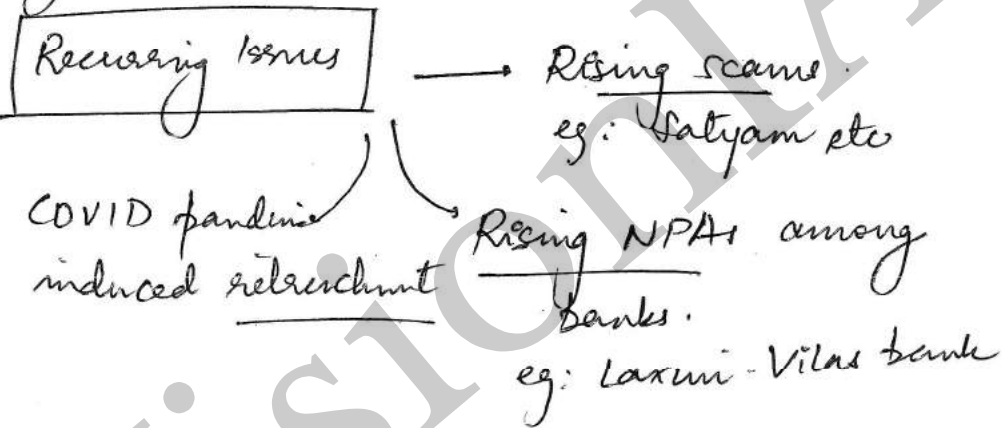 Recurring Issues
Rising scams.
eg: Satyam etc
COVID pandemic
induced retrenchment
Rising NPAs among
banks.
eg: Laxmi-Vilas bank